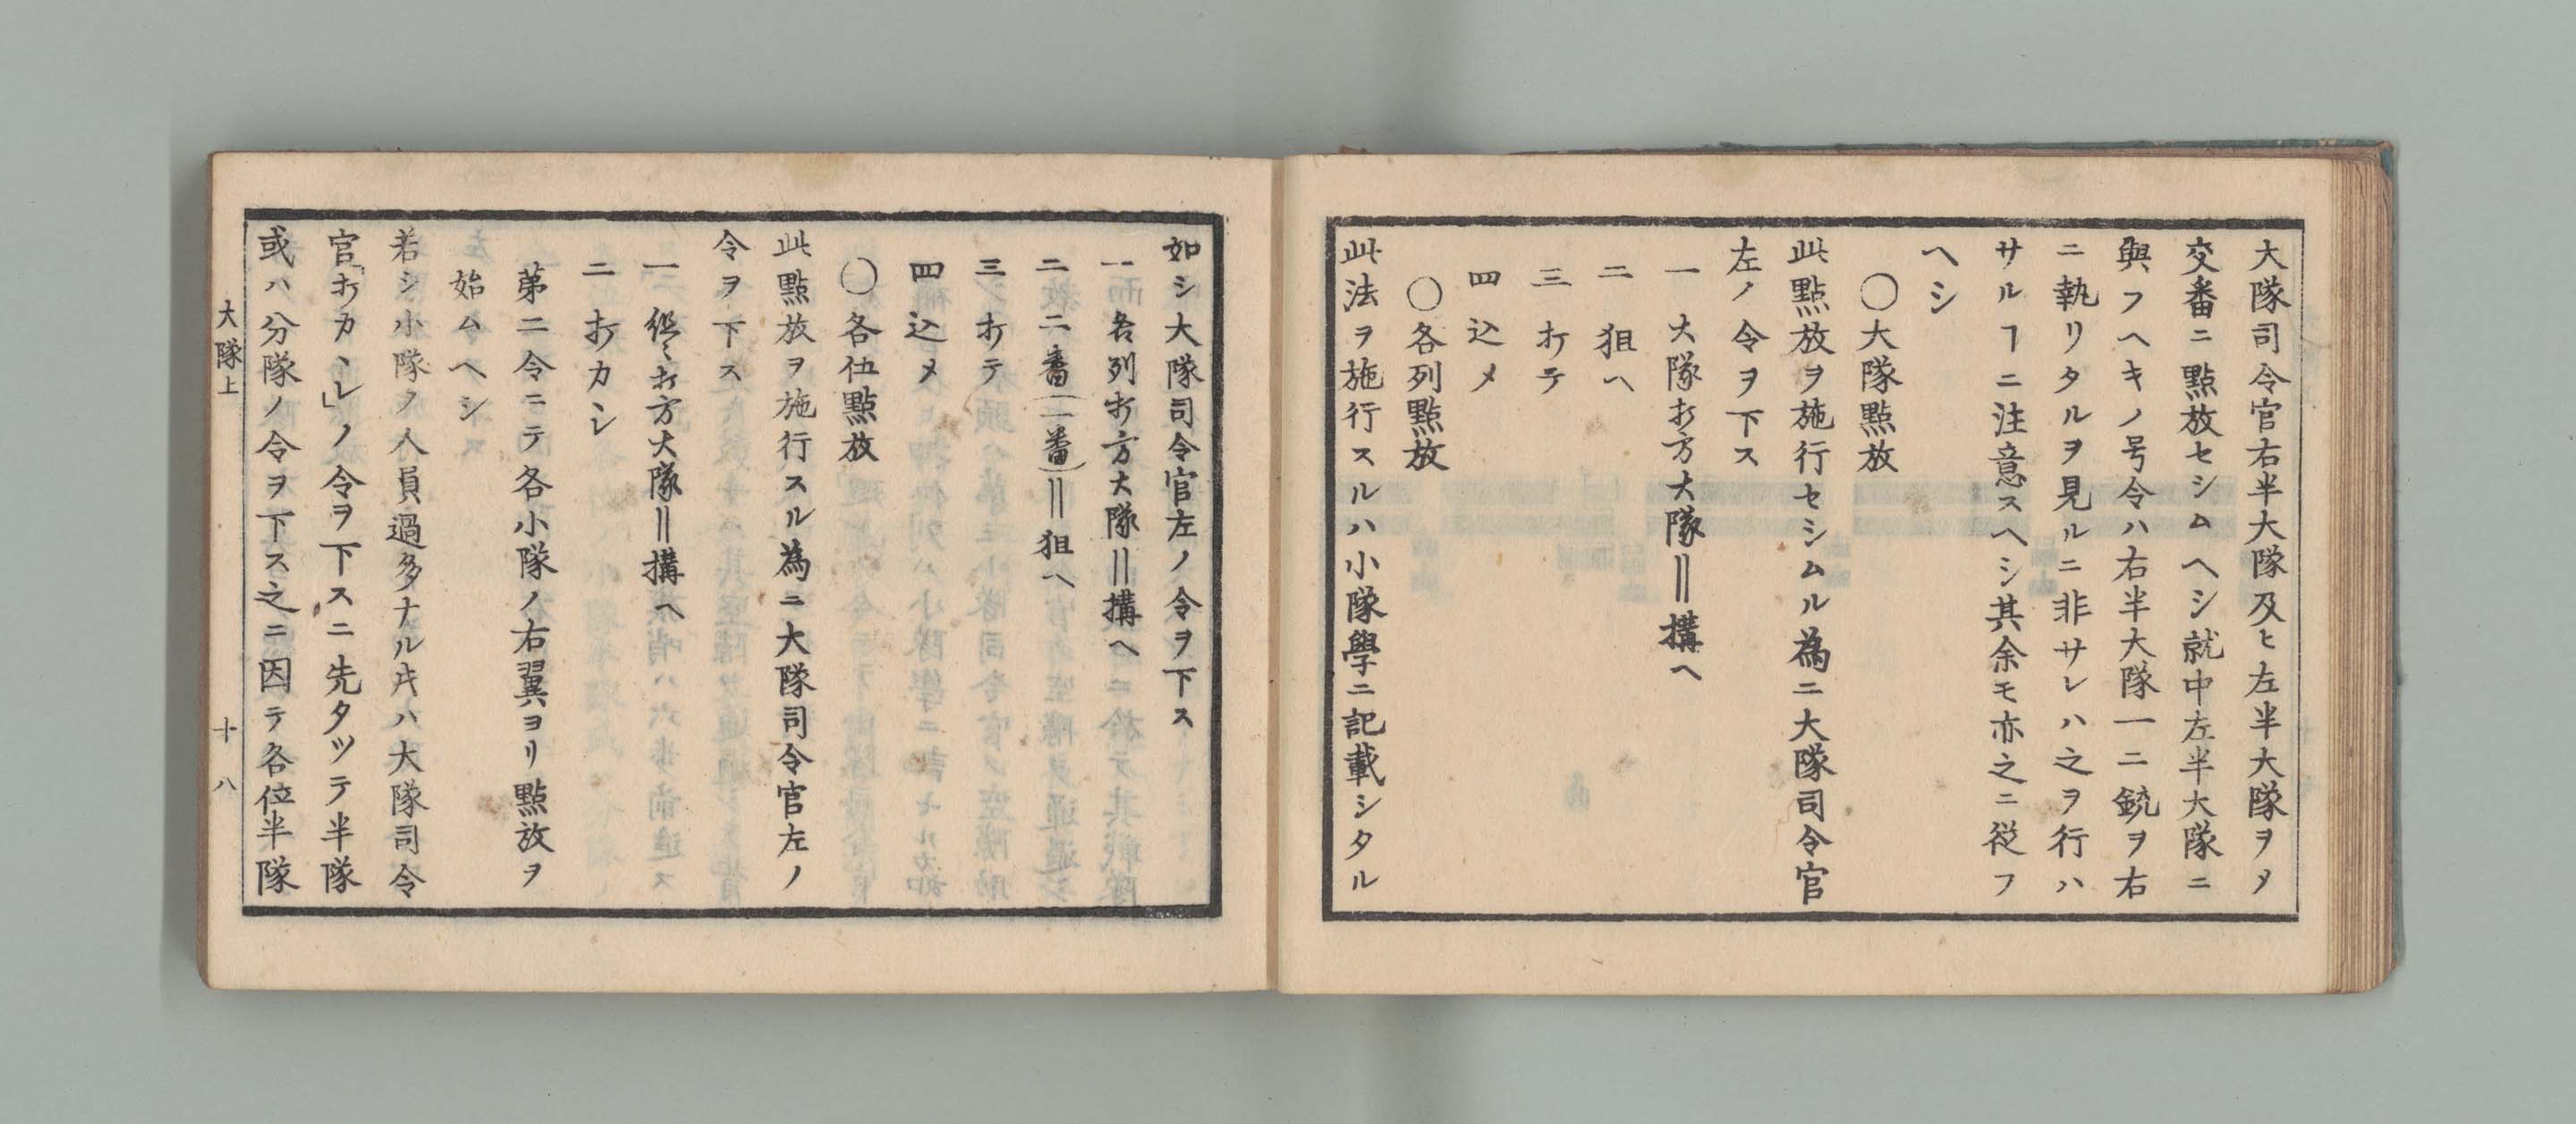 大隊司令官右半大隊及ヒ左半大隊ヲメ
交番ニ點放セシムヘシ就中左半大隊ニ
與フヘキノ号令ハ右半大隊一ニ銃ヲ右
ニ執リタルヲ見ルニ非サレハ之ヲ行ハ
サルヿニ注意スヘシ其余モ亦之ニ從フ
ヘシ
〇大隊點放
此點放ヲ施行セシムル為ニ大隊司令官
左ノ令ヲ下ス
一 大隊打方大隊‖搆ヘ
二 狙ヘ
三 打テ
四 込メ
〇各列點放
此法ヲ施行スルハ小隊學ニ記載シタル
如シ大隊司令官左ノ令ヲ下ス
一 各列打方大隊‖搆ヘ
二 二番(一番)‖狙ヘ
三 打テ
四 込メ
〇各伍點放
此點放ヲ施行スル為ニ大隊司令官左ノ
令ヲ下ス
一 打方大隊‖搆ヘ
二 打カヽレ
第二令ニテ各小隊ノ右翼ヨリ點放ヲ
始ムヘシ
若シ小隊ノ人員過多ナルキハ大隊司令
官「打カヽレ」ノ令ヲ下スニ先タツテ半隊
或ハ分隊ノ令ヲ下ス之ニ因テ各位半隊
大隊上 十八